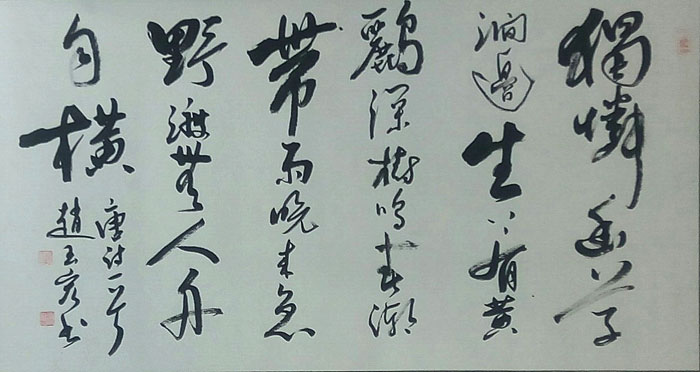 獨憐幽草
澗邊生上有黃
鸝深樹鳴春潮
帶雨晚來急
野渡無人舟
自橫
唐詩一首
趙玉書